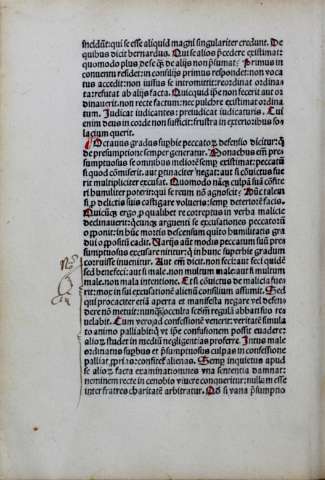 incidunt: qui se esse aliquid magni singulariter credunt. De
quibus dicit bernardus. Qui se alios p̄cedere existimat:
quomodo plus de se q̄ de alijs nō p̄sumat: Primus in
conuentu residet: in consilijs primus respondet: non voca
tus accedit: non iussus se intromittit: reordinat ordina
ta: refutat ab alijs facta. Quicquid ip̄e non fecerit aut or
dinauerit. non recte factum: nec pulchre existimat ordina
tum. Judicat iudicantes: preiudicat iudicaturis. Cui
enim deus in corde non sufficit: frustra in exterioribus so
lacium querit.
Octauus gradus supbie peccatoꝝ defensio dicitur: q̄
de presumptione semper generatur. Monachus em̄ pre
sumptuosus se omnibus meliorē semp existimat: peccatū
si quod cōmiserit. aut pnaciter negat: aut si cōuictus fue
rit multipliciter excusat. Quomodo nāq̄ culpā suā cōfite
ri humiliter poterit: qui se reum nō agnoscit: Hūc talem
si p delictis suis castigare volueris: semp deteriorē facis.
Quicūq̄ ergo p qualibet re cōtreptus in verba malicie
declinauerit: q̄cūq̄ argumenti se excusationes peccatorū
opponit: in hūc motis descensum quito humilitatis gra
dui oppositū cadit. Varijs aūt modis peccatum suū pre
sumptuosus excusare nitit̄: q̄ in hunc superbie gradum
corruisse inuenitur. Aut em̄ dicit. non feci: aut feci quidē
sed benefeci: aut si male. non multum male: aut si multum
male. non mala intentione. Et si cōuictus de malicia fue
rit: mox in sui excusationē alienū consilium assumit. Sed
qui procaciter etiā aperta et manifesta negare vel defen
dere nō metuit: nunq̄ occulta scd̄m regulā abbati suo re
uelabit. Cum vero ad confessionē venerit: veritatē simula
to animo palliabit: vt ip̄e confusionem possit euadere:
alios studet in mediū negligentias proferre. Intus male
ordinatus supbus et p̄sumptuosus culpas in confessione
palliat pprias: confitetr alienas. Semp inquietus apud
se alioꝝ facta examinat: omnes vna sententia damnat:
neminem recte in cenobio viuere conqueritur: nullam esse
inter fratres charitatē arbitratur. Qd si vana p̄sumptio